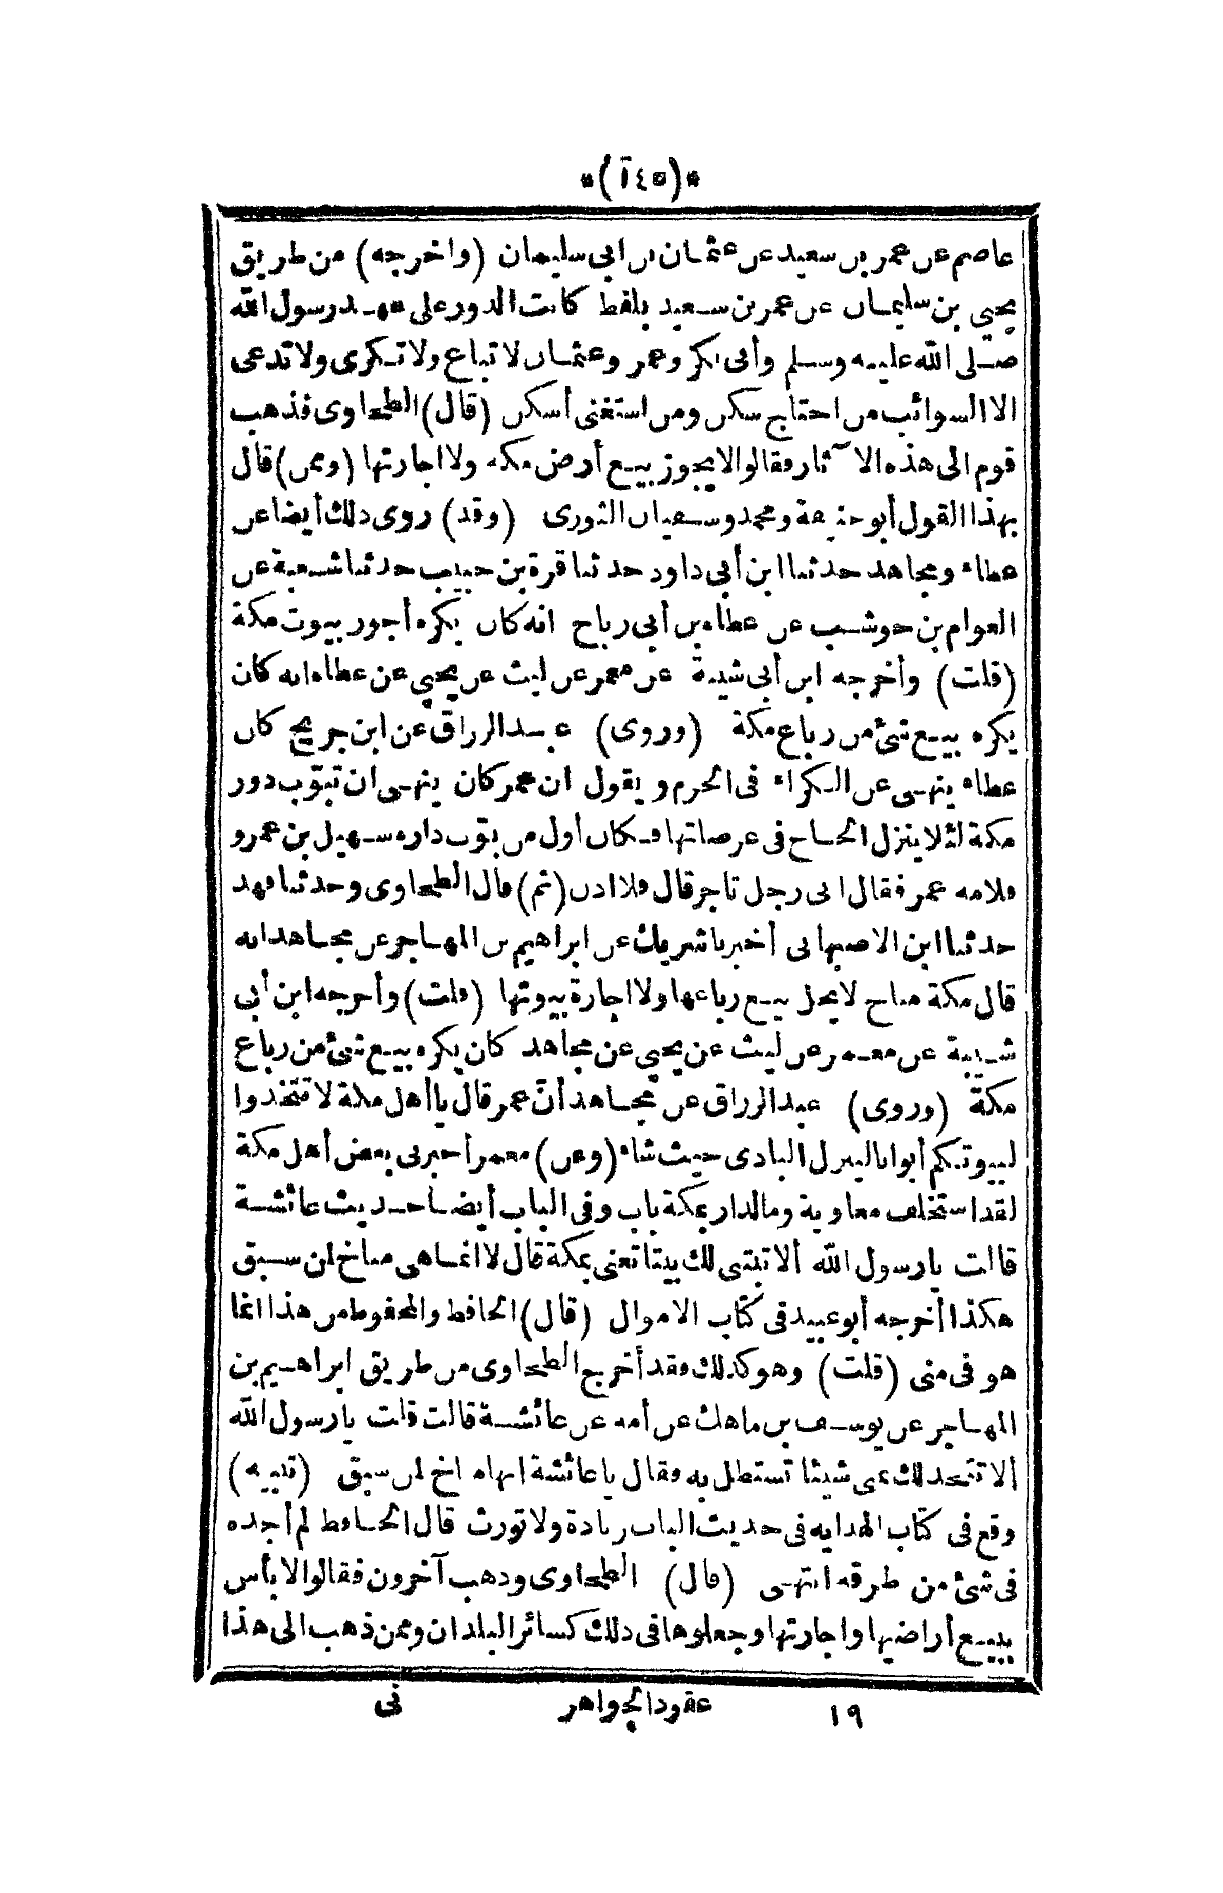 *(١٤٥)*
عاصم عن عمر بن سعيد عن عثمان بن ابى سليمان (واخرجه) من طريق
يحيى بن سليمان عن عمر بن سعيد بلفظ كانت الدور على عهد رسول الله
صلى الله عليه وسلم وأبى بكر وعمر وعثمان لا تباع ولا تكرى ولا تدعى
الا السوائب من احتاج سكن ومن استغنى أسكن (قال) الطحاوى فذهب
قوم الى هذه الا ثار فقالوا لا يجوز بيع أرض مكة ولا اجارتها (وممن) قال
بهذا القول أبو حنيفة ومحمد وسفيان الثورى (وقد) روى ذلك أيضا عن
عطاء ومجاهد حدثنا ابن أبى داود حدثنا قرة بن حبيب حدثنا شعبة عن
العوام بن حوشب عن عطاء بن أبى رباح انه كان يكره أجور بيوت مكة
(قلت) وأخرجه ابن أبى شيبة عن معمر عن ليث عن يحيى عن عطاء انه كان
يكره بيع شئ من رباع مكة (وروى) عبد الرزاق عن ابن جريج كان
عطاء ينهى عن الكراء فى الحرم ويقول ان عمر كان ينهى ان تبوّب دور
مكة لئلا ينزل الحاج فى عرصاتها فكان أول من بوّب داره سهيل بن عمرو
فلامه عمر فقال انى رجل تاجر قال فلا اذن (ثم) قال الطحاوى وحدثنا فهد
حدثنا ابن الاصبهانى أخبرنا شريك عن ابراهيم بن المهاجر عن مجاهد انه
قال مكة مباح لا يحل بيع رباعها ولا اجارة بيوتها (قلت) وأخرجه ابن أبى
شيبة عن معمر عن ليث عن يحيى عن مجاهد كان يكره بيع شئ من رباع
مكة (وروى) عبد الرزاق عن مجاهد أنّ عمر قال يا أهل مكة لا تتخذوا
لبيوتكم أبوابا لينزل البادى حيث شاء (وعن) معمر أخبرنى بعض أهل مكة
لقد استخلف معاوية وما لدار بمكة باب وفى الباب أيضا حديث عائشة
قالت يا رسول الله ألا تبتنى لك بيتا تعنى بمكة قال لا انما هى مناخ لمن سبق
هكذا أخرجه أبو عبيد فى كتاب الاموال (قال) الحافظ والمحفوظ من هذا انما
هو فى منى (قلت) وهو كذلك فقد أخرج الطحاوى من طريق ابراهيم بن
المهاجر عن يوسف بن ماهك عن أمه عن عائشة قالت قلت يا رسول الله
ألا تتخذ لك بمنى شيئا تستظل به فقال يا عائشة انها مناخ لمن سبق (تنبيه)
وقع فى كتاب الهدايه فى حديث الباب زيادة ولا تورث قال الحافظ لم أجده
فى شئ من طرقه انتهى (قال) الطحاوى وذهب آخرون فقالوا لا بأس
ببيع أراضيها واجارتها وجعلوها فى ذلك كسائر البلدان وممن ذهب الى هذا
١٩ عقود الجواهر نى